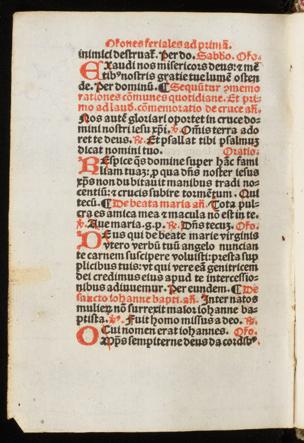 Orones feriales ad primã.
inimici destruat̃. Per do. Sabbo. Oro.
Exaudi nos misericors deus: ⁊ mẽ
tib⁹ nostris gratie tue lumẽ osten
de. Per dominũ. Sequũtur ꝯmemo
rationes cõmunes quotidiane. Et pri
mo ad laud. cõmemoratio de cruce añ.
Nos autẽ gloriari oportet in cruce do
mini nostri iesu xp̃i. ℣. Om̃is terra ado
ret te deus. ℟. Et psallat tibi psalmuʒ
dicat nomini tuo. Oratio.
Respice q̃s domine super hãc fami
liam tuaʒ: p̱ qua dñs noster iesus
xp̃s non dubitauit manibus tradi no-
centiũ: ⁊ crucis subire tormẽtum. Qui
tecũ. De beata maria añ. Tota pul-
cra es amica mea ⁊ macula nõ est in te.
℣. Aue maria. g. p. ℟. Dñs tecuʒ. Oro.
Deus qui de beate marie virginis
vtero verbũ tuũ angelo nuncian
te carnem suscipere voluisti: presta sup
plicibus tuis: vt qui vere eã genitricem
dei credimus eius apud te intercessio-
nibus adiuuemur. Per eundem. De
sancto iohanne bapti. añ. Inter natos
mulieꝝ nõ surrexit maior iohanne ba-
ptista. ℣. Fuit homo missus a deo. ℟.
Cui nomen erat iohannes. Oro.
Om̃ps sempiterne deus da cordib⁹